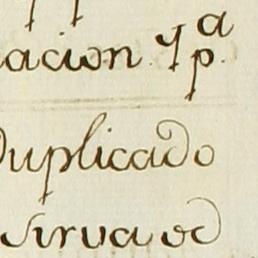 acion Y p.ª
Duplicado
sirva de